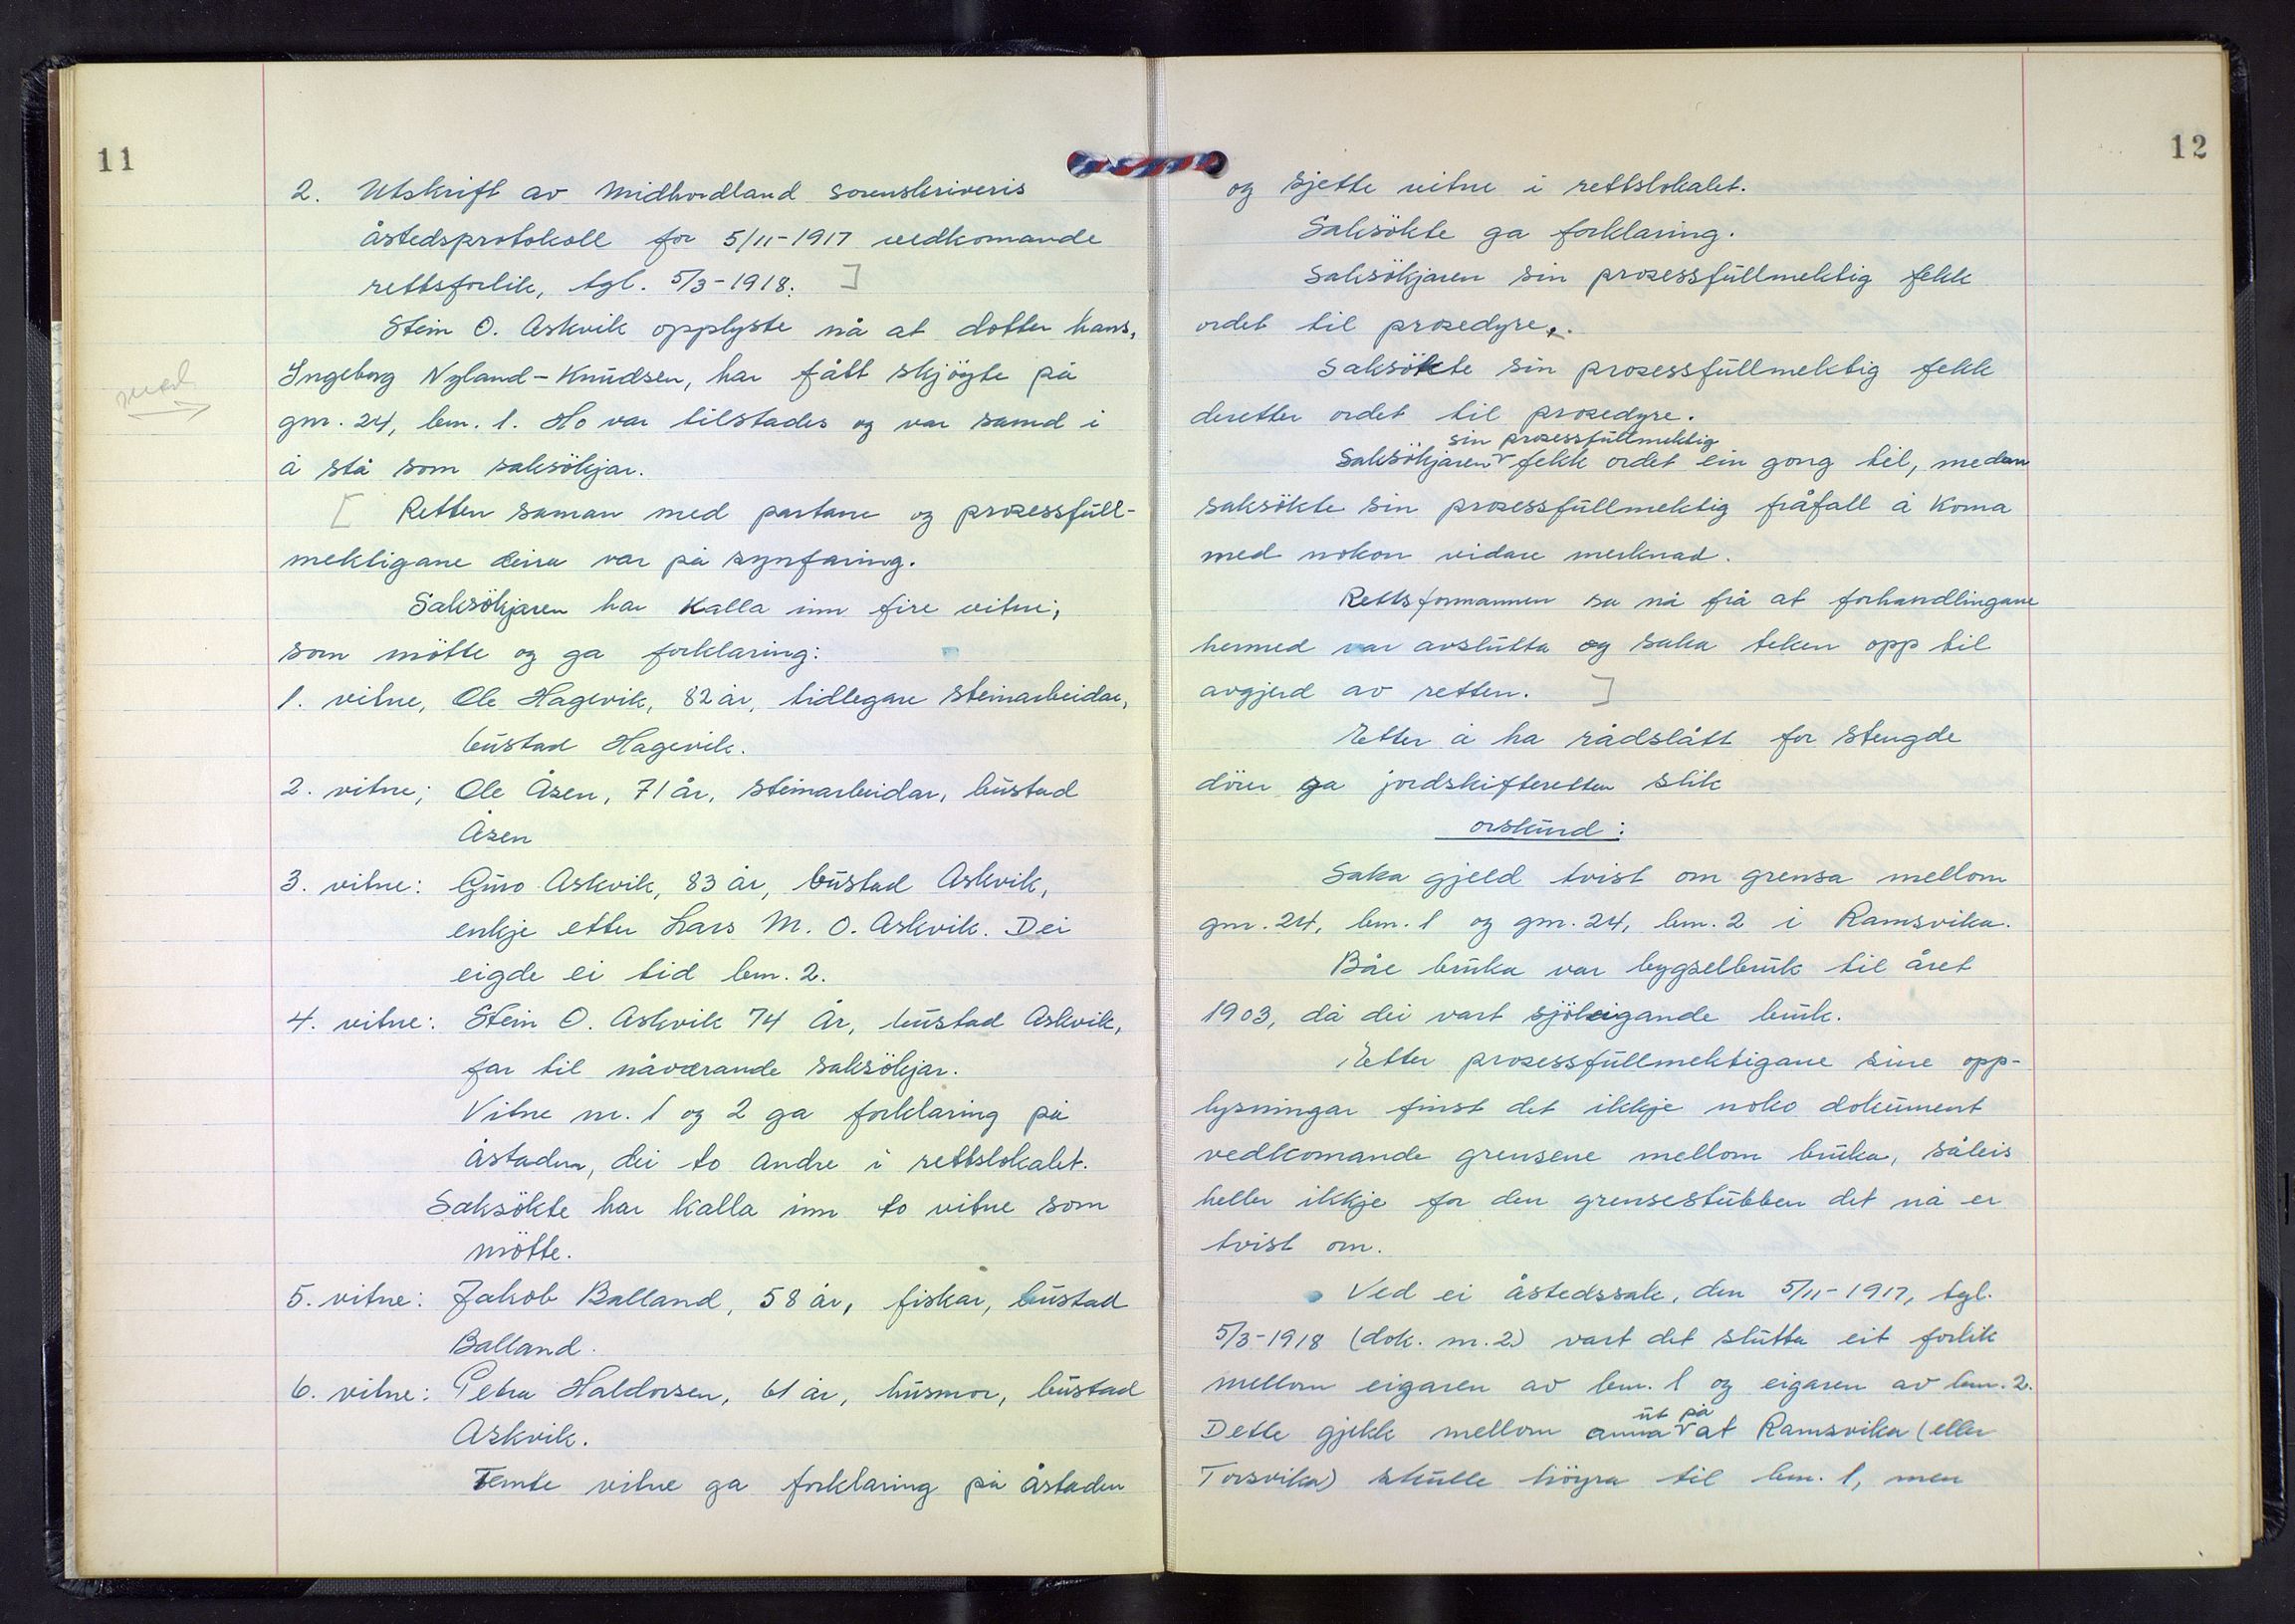 11
2. Utskrift av Midhordland sorenskriveris
åstedsprotokoll for 5/11-1917 vedkomande
rettsforlik, tgl. 5/3-1918. ]
Stein O. Askvik opplyste nå at dotter hans,
Ingeborg Nyland-Knudsen, har fått skjöyte på
gnr. 24, bnr. 1. Ho var tilstades og var samd i
å stå som saksökjar.
[ Retten saman med partane og prosessfull-
mektigane deira var på synfaring.
Saksökjaren har kalla inn fire vitne,
som mötte og ga forklaring:
1. vitne, Ole Hagevik, 82 år, tidlegare steinarbeidar,
bustad Hagevik.
2. vitne; Ole Åsen, 71 år, steinarbeidar, bustad
Åsen
3. vitne: Guro Askvik, 83 år, bustad Askvik,
enkje etter Lars M. O. Askvik. Dei
eigde ei tid bnr. 2.
4. vitne: Stein O. Askvik 74 År, bustad Askvik,
far til nåværande saksökjar.
Vitne nr. 1 og 2 ga forklaring på
åstaden, dei to andre i rettslokalet.
Saksökte har kalla inn to vitne som
mötte.
5. vitne: Jakob Balland, 58 år, fiskar, bustad
Balland.
6. vitne: Petra Haldorsen, 61 år, husmor, bustad
Askvik.
Femte vitne ga forklaring på åstaden
12
og sjette vitne i rettslokalet.
Saksökte ga forklaring.
Saksökjaren sin prosessfullmektig fekk
ordet til prosedyre.
Saksökte sin prosessfullmektig fekk
deretter ordet til prosedyre.
sin prosessfullmektig
Saksökjaren fekk ordet ein gong til, medan
saksökte sin prosessfullmektig fråfall å koma
med nokon vidare merknad.
Rettsformannen sa nå frå at forhandlingane
hermed var avslutta og saka teken opp til
avgjerd av retten. ]
Etter å ha rådslått for stengde
dörer ga jordskifteretten slik
orskurd:
Saka gjeld tvist om grensa mellom
gnr. 24, bnr. 1 og gnr. 24, bnr. 2 i Ramsvika.
Båe bruka var bygselbruk til året
1903, då dei vart sjöleigande bruk.
Etter prosessfullmektigane sine opp-
lysningar finst det ikkje noko dokument
vedkomande grensene mellom bruka, såleis
heller ikkje for den grensestubben det nå er
tvist om.
Ved ei åstedssak, den 5/11-1917, tgl.
5/3-1918 (dok. nr. 2) vart det slutta eit forlik
mellom eigaren av bnr. 1 og eigaren av bnr. 2.
ut på
Dette gjekk mellom anna at Ramsvika (eller
Torsvika) skulle höyra til bnr. 1, men